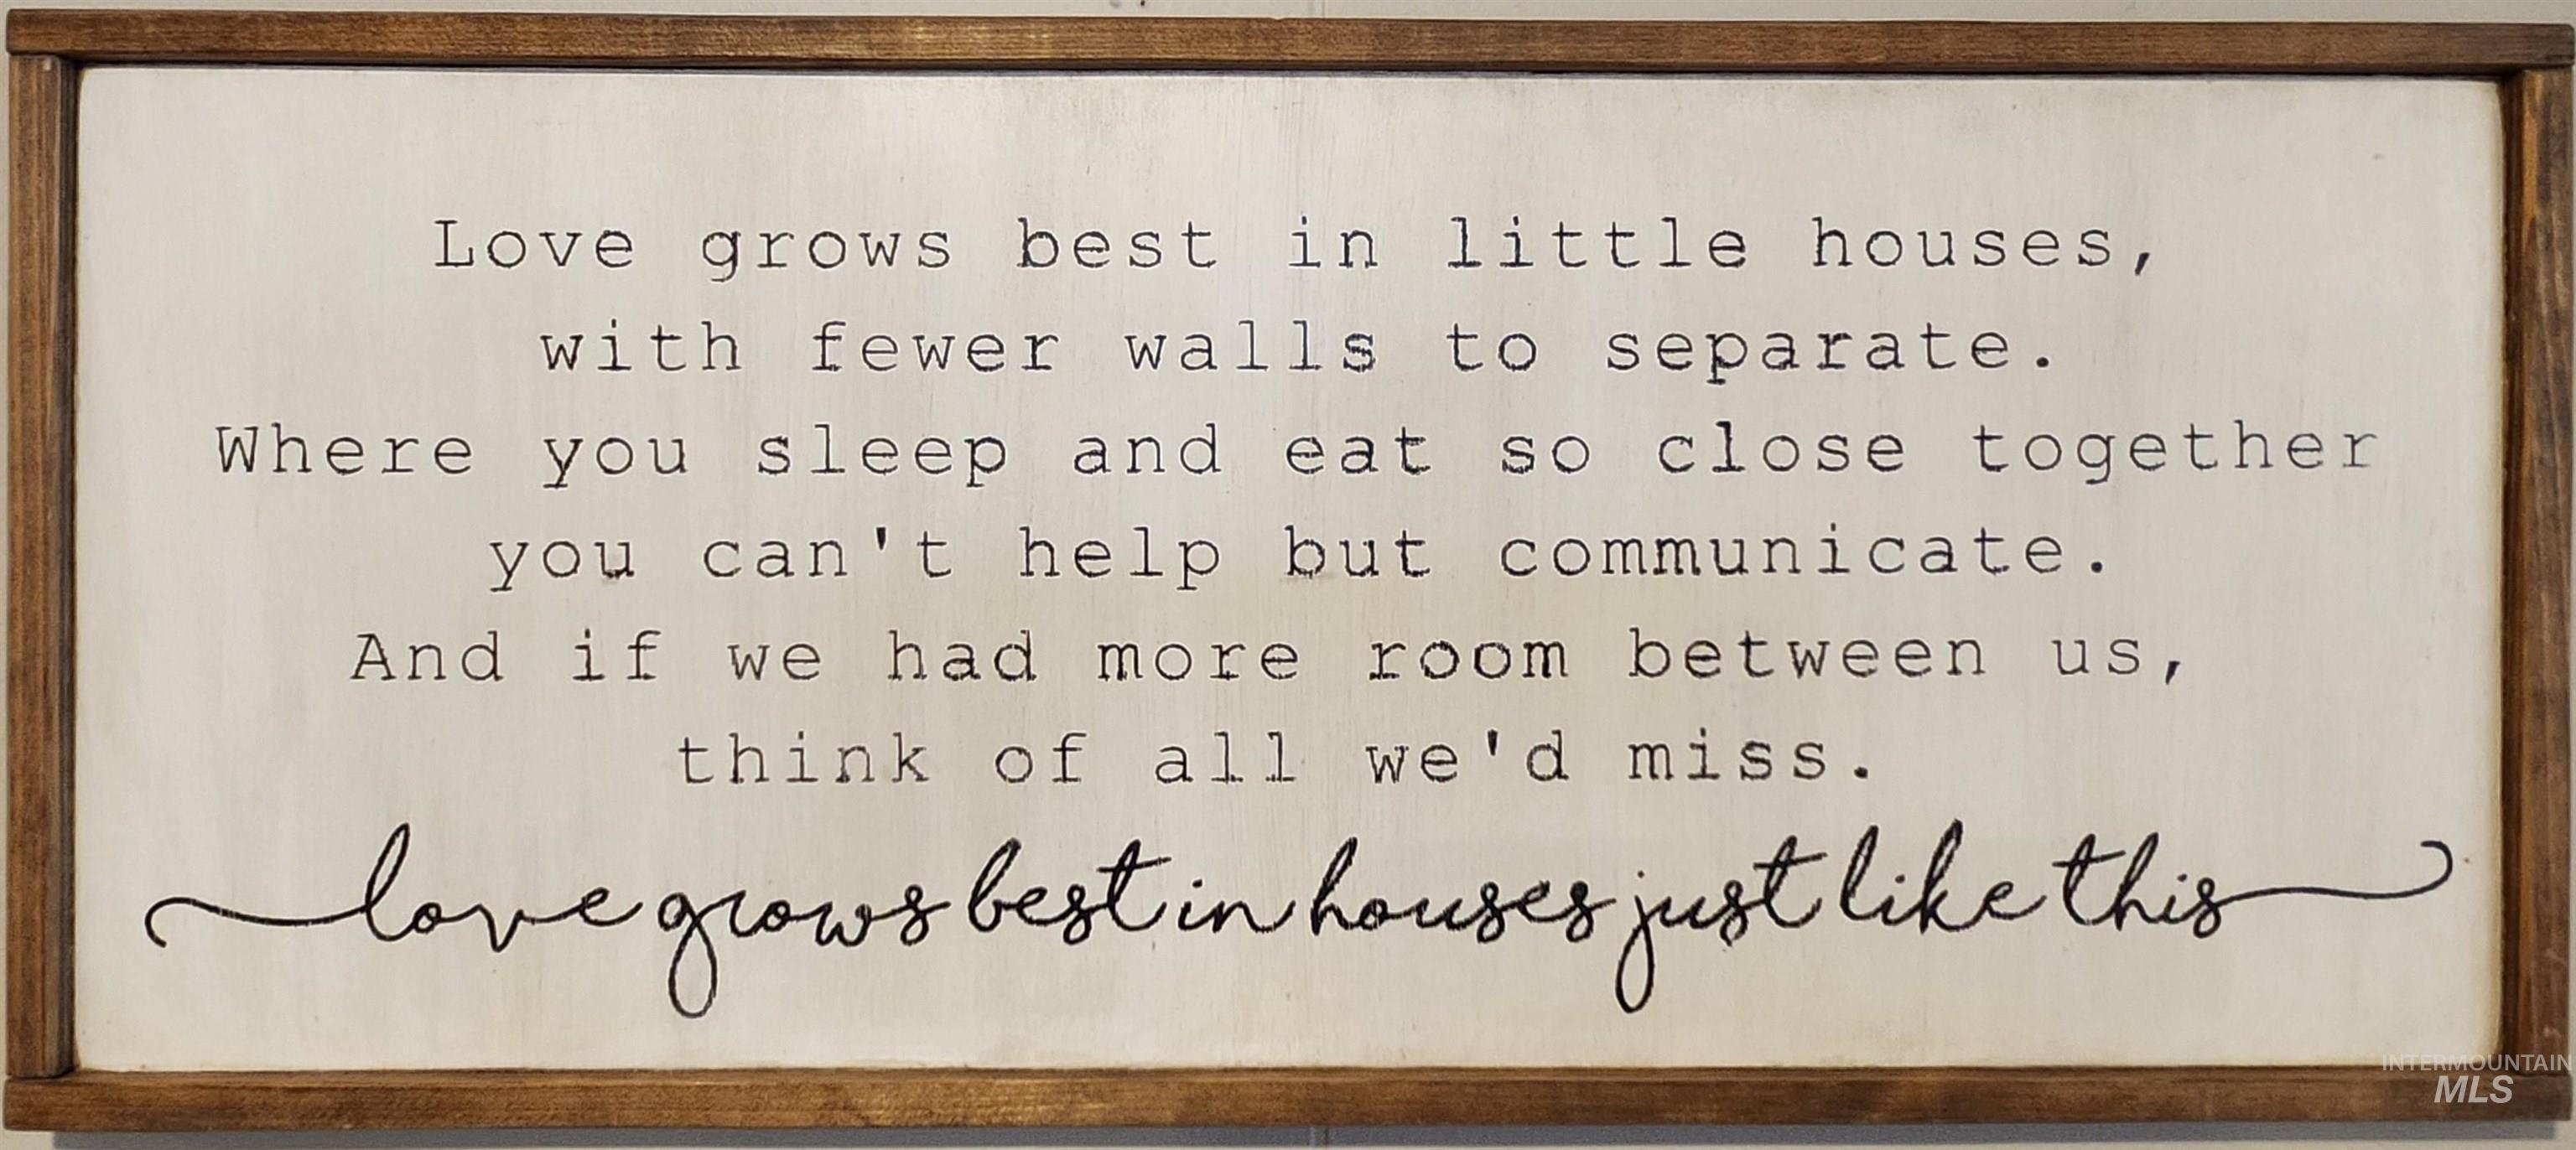 Love grows best in little houses,
with fewer walls to separate.
Where you sleep and eat so close together
you can't help but communicate.
And if we had more room between us,
think of all we'd miss.
love grows best in houses just like this
INTERMOUNTAIN
MLS